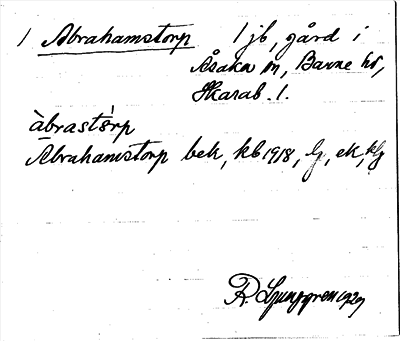 1 Abrahamstorp 1 jb, gård i
Åsaka sn, Barne hd,
Skarab. l.
àbrastɷ̀rp
Abrahamstorp bek, kb 1918, lg, ek, klg
R. Ljunggren 1929